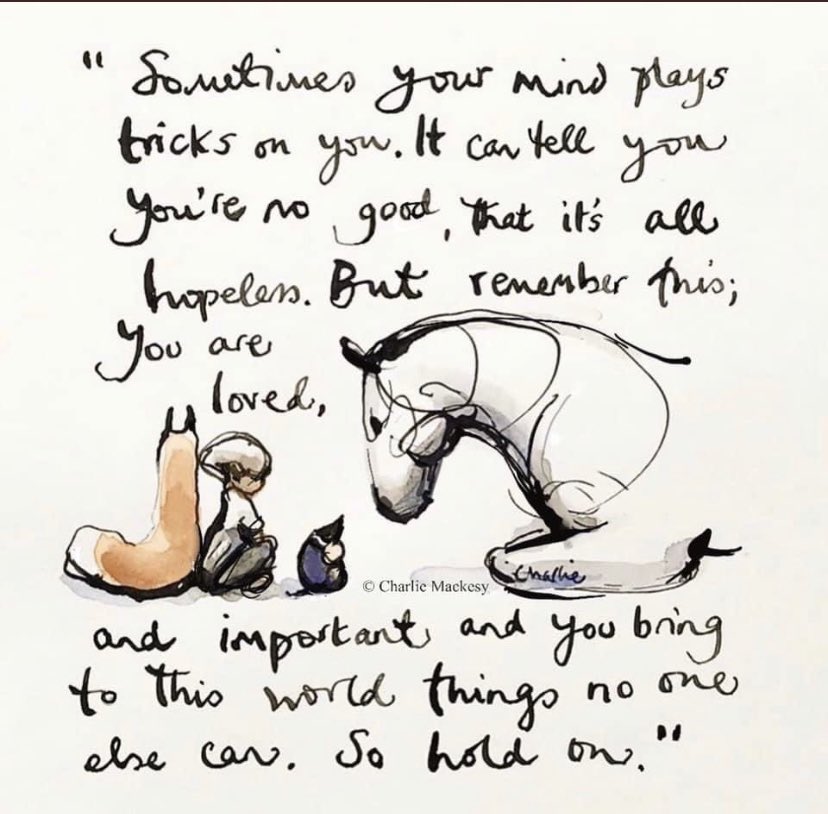 " Sometimes your mind plays
tricks on you. It can tell you
you're no good, that it's all
hopeless. But remember this;
You are
loved,
© Charlie Mackesy
Charlie
and important, and you bring
to this world things no one
else can. So hold on."